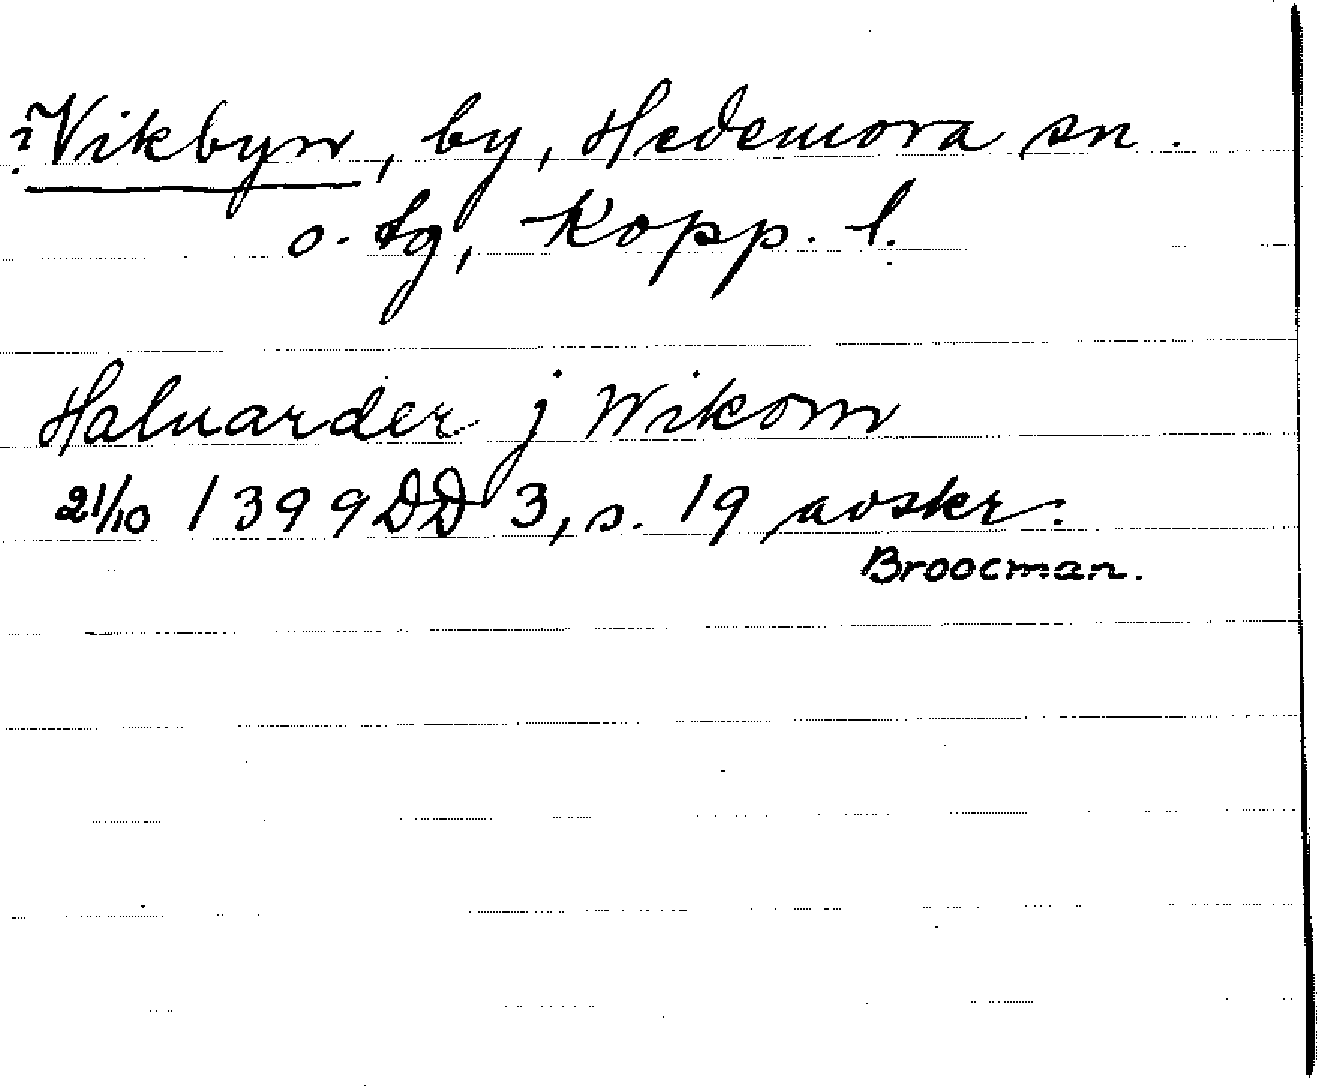 ? Vikbyn, by, Hedemora sn.
o. tg, Kopp. l.
Haluarder j Wikom
21/10 1399 DD 3, s. 19 avskr.
Broocman.